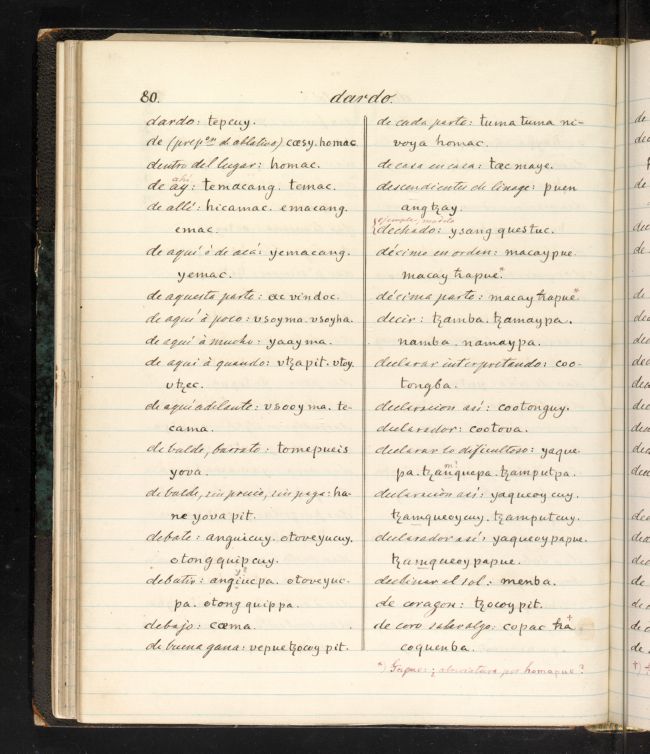 80.
dardo.
dardo: tepcuy.
de (prepon de ablativo) cœsy. homac
dentro del lugar: homac.
ahí
de ay: temacang. temac.
de allí: hicamac. emacang.
emac.
de aquí ó de acá: yemacang.
yemac.
de aquesta parte: œc vindoc.
de aquí à poco: vsoyma. vsoyha.
de aquí à mucho: yaayma.
de aquí à quando: vtꜩapit. vtoy.
de aquí adelante: vsooyma. te-
cama.
de balde, barrato: tomepueis
yova.
de balde, sin precio, sin paga: ha-
ne yova pit.
debate: anguicuy. otoveyucuy.
otong quipcuy.
debatir: angiucpa. otoveyuc-
pa. otong quippa.
debajo: cœma.
de buena gana: vcpueꜩocoy pit.
de cada parte: tuma tuma ni-
voya homac.
de casa en casa: tœc maye.
descendientes de linage: puen
angꜩay.
ejemplo, modelo
dechado: ysang questuc.
décimo en orden: macaypue.
macay ħapue.*
décima parte: macay ħapue*
decir: ꜩamba. ꜩamaypa.
namba. namaypa.
declarar interpretando: coo-
tongba.
declaracion así: cootonguy.
declarador: cootova.
declarar lo dificultoso: yaque-
pa. ꜩanquepa. ꜩamputpa.
declaracion así: yaqueoy cuy.
ꜩamqueoycuy. ꜩamputcuy.
declarador así: yaqueoy papue.
ꜩamqueoy papue.
declinar el sol: menba.
de coraçon: ꜩocoy pit.
de coro saber algo: copac ħa+
coquenba.
abreviatura por homapue?